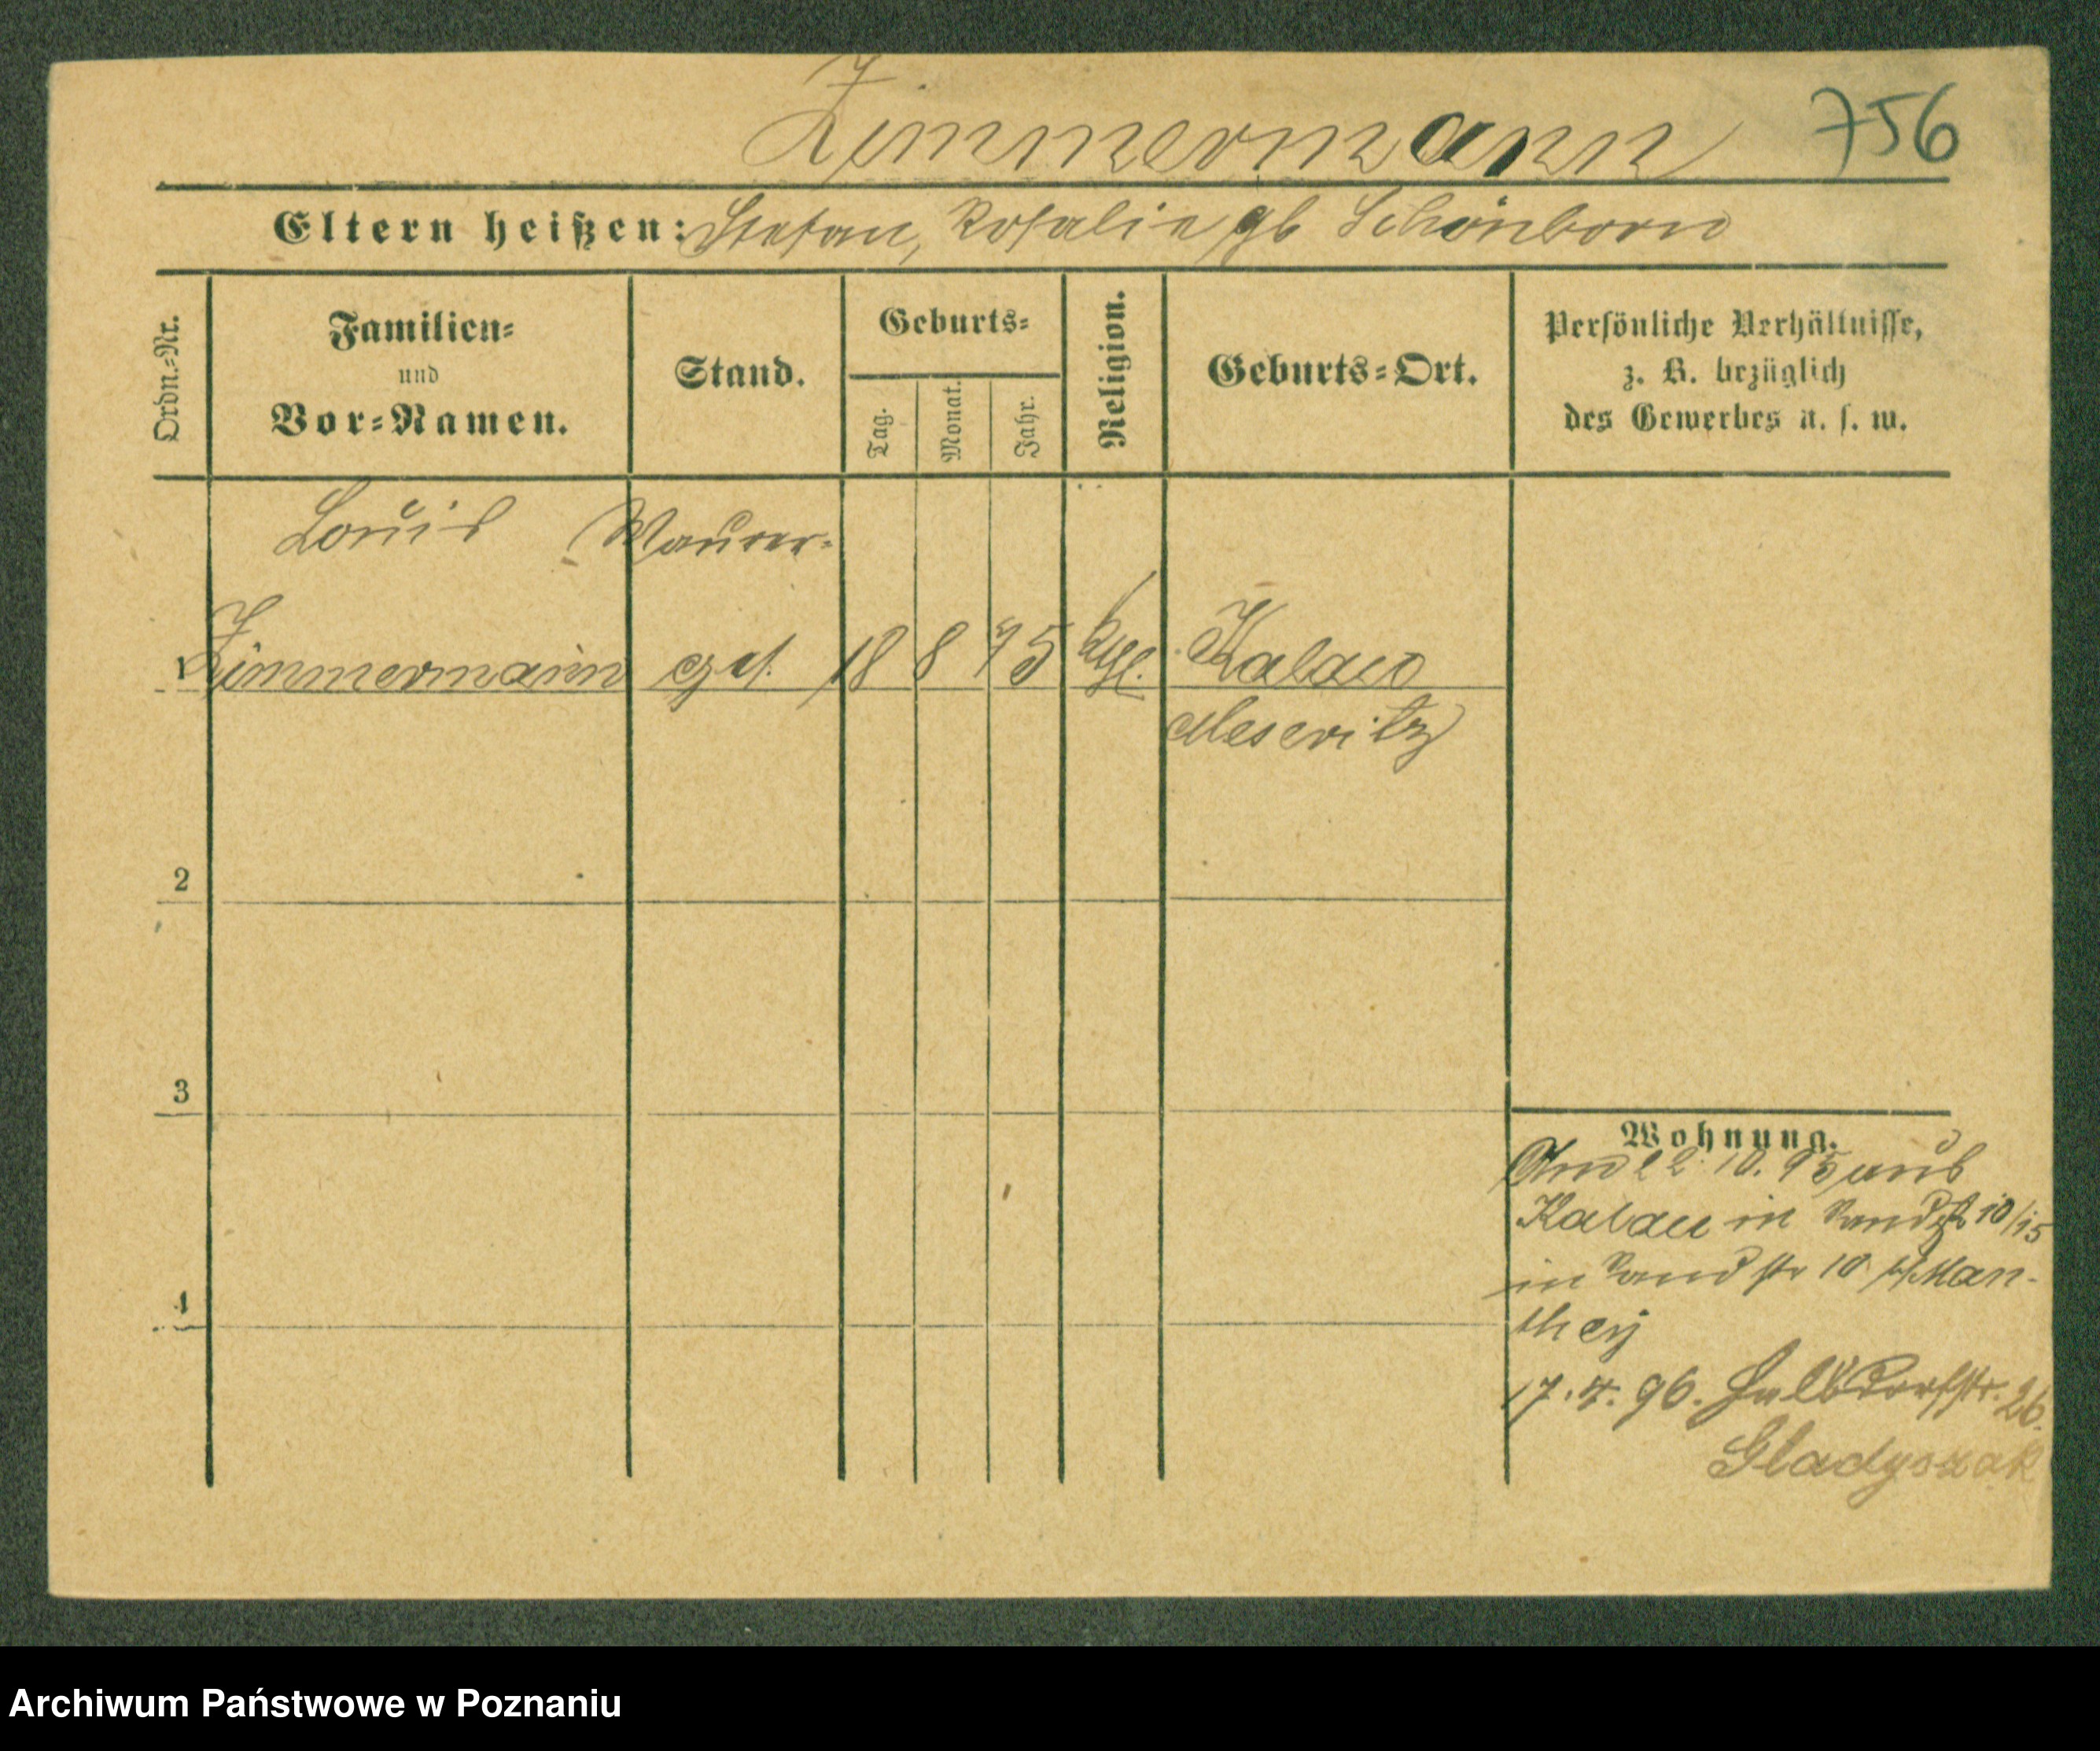 Zimmermann 756
Eltern heißen: Stefan, Rosalie gb Schönborn
Ordn.=Nr.
Familien=
und
Vor=Namen.
Stand.
Geburts=
Tag.
Monat.
Jahr.
Religion.
Geburts=Ort.
Persönliche Verhältnisse,
z. B. bezüglich
des Gewerbes u. s. w.
Louis Maurer-
1 Zimmermann gel. 18 8 75 kath. Kalau
Meseritz
2
3
4
Wohnung.
22 10. 95 aus
Kalau in 10/15
in str 10 b/ Man-
they
17. 4. 96. Halbdorfstr. 26.
Gladyszak
Archiwum Państwowe w Poznaniu